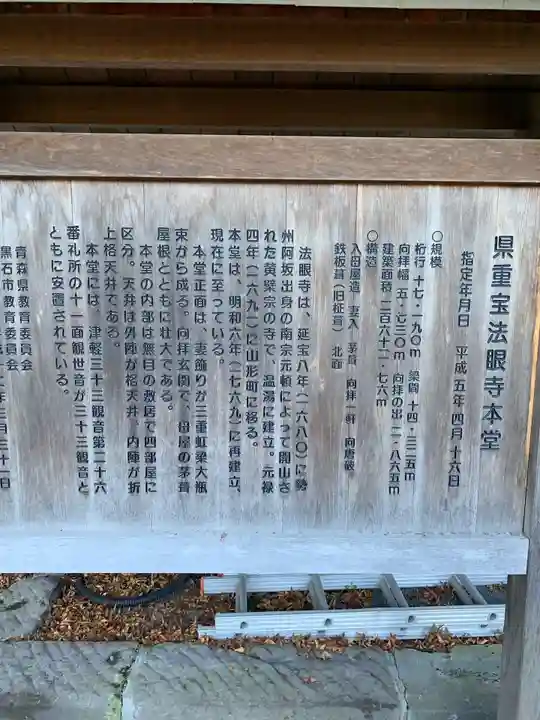 県重宝法眼寺本堂
指定年月日 平成五年四月十六日
〇規模
桁行 十七・一九〇m 梁間 十四・三二五m
向拝幅 五・七三〇m 向拝の出 二・八六五m
建築面積 二百六十一・七六㎡
〇構造
入母屋造 妻入 茅葺 向拝一軒 向唐破
鉄板葺(旧柾葺) 北面
法眼寺は、延宝八年(一六八〇)に勢
州阿坂出身の南宗元頓によって開山さ
れた黄檗宗の寺で、温湯に建立。元禄
四年(一六九一)に山形町に移る。
本堂は、明和六年(一七六九)に再建立、
現在に至っている。
本堂正面は、妻飾りが三重虹梁大瓶
束から成る。向拝玄関で、母屋の茅葺
屋根とともに壮大である。
本堂の内部は無目の敷居で四部屋に
区分。天井は外陣が格天井、内陣が折
上格天井である。
本堂には、津軽三十三観音第二十六
番札所の十一面観世音が三十三観音と
ともに安置されている。
青森県教育委員会
黒石市教育委員会
年三月三十一日